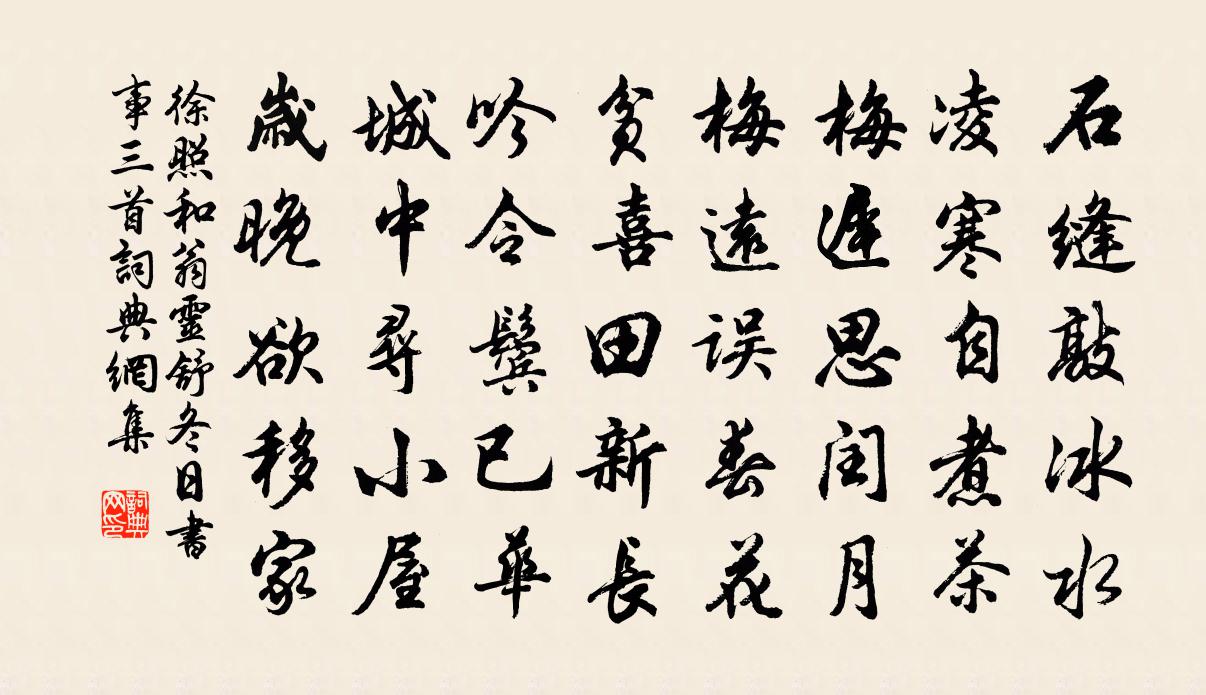 石縫敲冰水
凌寒自煮茶
梅遲思閏月
梅遠误春花
貧喜田新長
吟令鬢已華
城中尋小屋
歲晚欲移家
徐照和翁靈舒冬日書
事三首詞典網集
詞典
网印